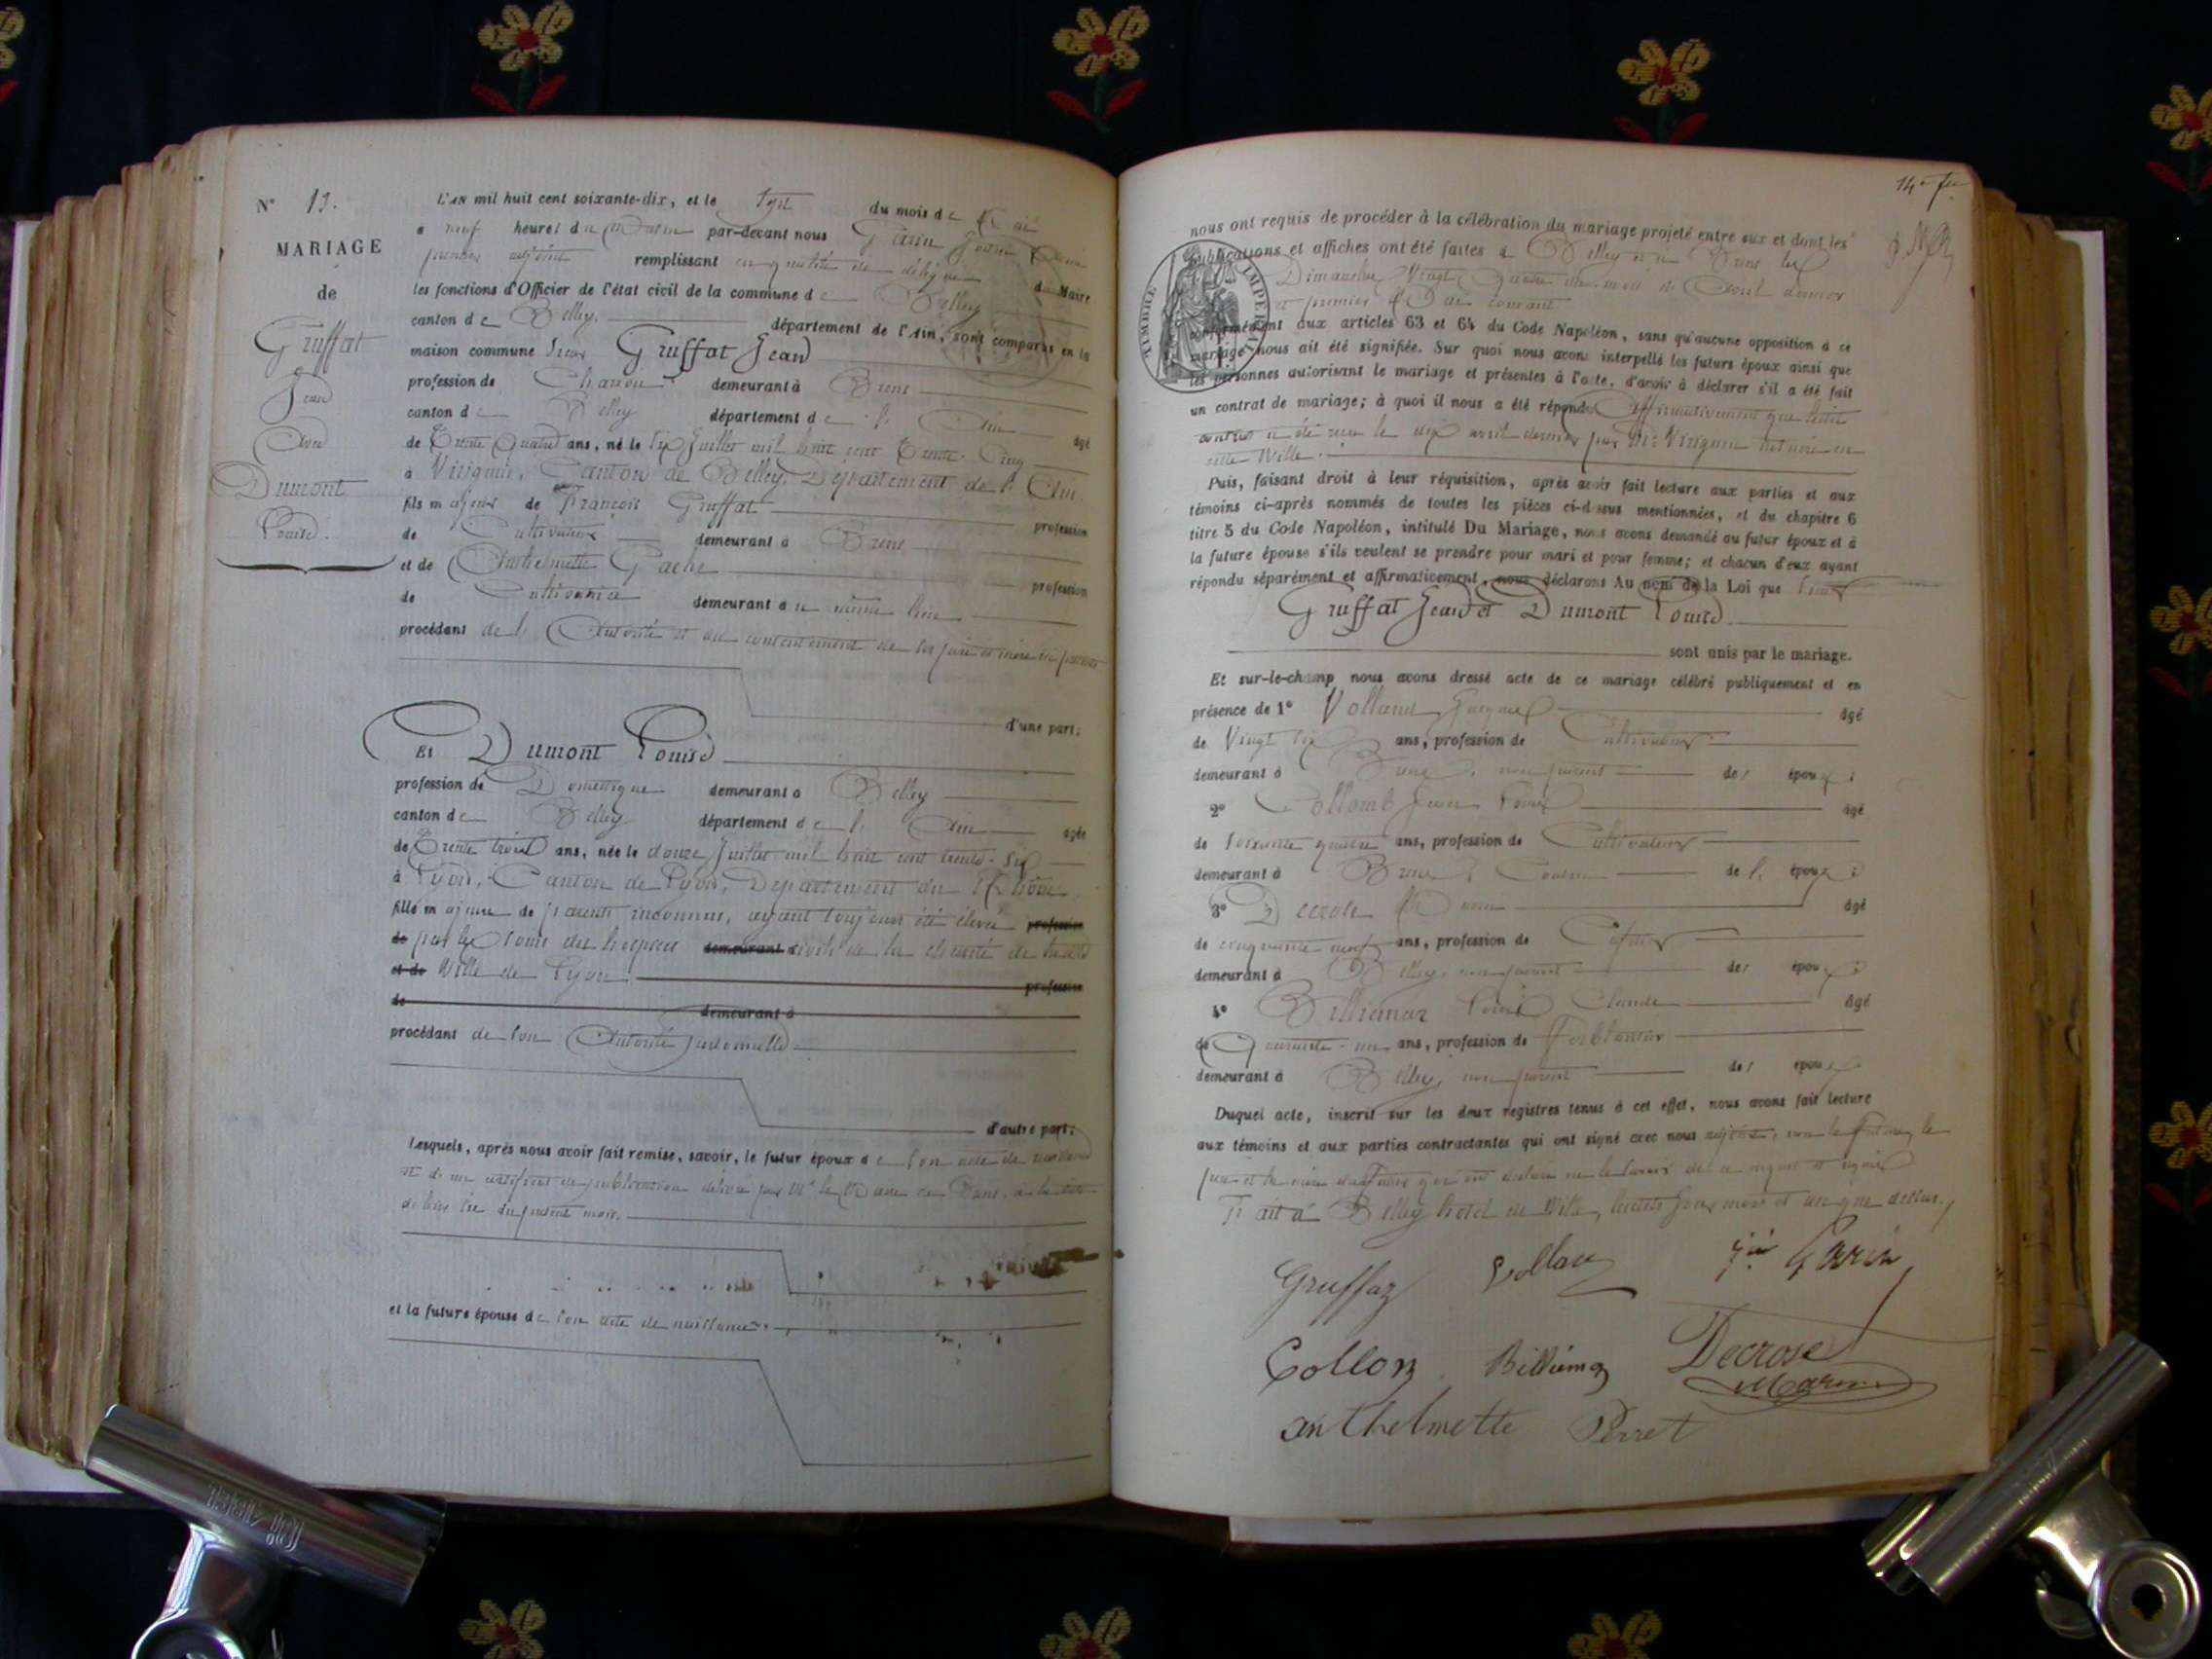 N° 13.
MARIAGE
de
Gruffat
Jean
Avec
Dumont
Louise.
L'AN mil huit cent soixante-dix, et le sept du mois de Mai
à neuf heures du matin par-devant nous Garin
premier adjoint remplissant en qualité de délégué du Maire
les fonctions d'Officier de l'état civil de la commune de Belley
canton de Belley. département de l'Ain, sont comparus en la
maison commune Sieur Gruffat Jean
profession de Charron demeurant à Brens
canton de Belley département de l'Ain âgé
de Trente quatre ans, né le six Juillet mil huit cent Trente-Cinq
à Virignin, Canton de Belley, Département de l'Ain,
fils majeur de François Gruffat profession
de Cultivateur demeurant à Brens
et de Anthelmette Gache profession
de Cultivatrice demeurant au même lieu
procédant de l'Autorité et du consentement de ses père et mère ici présents
d'une part;
Et Dumont Louise
profession de Domestique demeurant à Belley
canton de Belley département de l'Ain âgée
de Trente trois ans, née le douze Juillet mil huit cent trente-six
à Lyon, Canton de Lyon, Département du Rhône
fille majeure de parents inconnus, ayant toujours été élevée profession
de par les soins des hospices demeurant à civils de la charité de la
et de Ville de Lyon profession
de demeurant à
procédant de son Autorité personnelle
d'autre part;
Lesquels, après nous avoir fait remise, savoir, le futur époux de son acte de naissance
et d'un certificat de publication délivré par Mr le Maire de Brens, à la date
du présent mois.
et la future épouse de son acte de naissance.
14e
nous ont requis de procéder à la célébration du mariage projeté entre eux et dont les
publications et affiches ont été faites à Belley et à Brens les
Dimanches Vingt quatre du mois de Avril dernier
et premier Mai courant
conformément aux articles 63 et 64 du Code Napoléon, sans qu'aucune opposition à ce
mariage nous ait été signifiée. Sur quoi nous avons interpellé les futurs époux ainsi que
les personnes autorisant le mariage et présentes à l'acte, d'avoir à déclarer s'il a été fait
un contrat de mariage; à quoi il nous a été répondu Affirmativement que ledit
contrat a été reçu le dix avril dernier par Me Virignin notaire en
cette Ville.
TIMBRE IMPERIAL
Puis, faisant droit à leur réquisition, après avoir fait lecture aux parties et aux
témoins ci-après nommés de toutes les pièces ci-dessus mentionnées, et du chapitre 6
titre 5 du Code Napoléon, intitulé Du Mariage, nous avons demandé au futur époux et à
la future épouse s'ils veulent se prendre pour mari et pour femme; et chacun d'eux ayant
répondu séparément et affirmativement, nous déclarons Au nom de la Loi que
Gruffat Jean et Dumont Louise
sont unis par le mariage.
Et sur-le-champ nous avons dressé acte de ce mariage célébré publiquement et en
présence de 1° Volland Jacques âgé
de Vingt six ans, profession de Cultivateur
demeurant à Brens, non parent des époux;
2° Collomb Jean Louis âgé
de soixante quatre ans, profession de Cultivateur
demeurant à Brens, Cousin de l'époux;
3° Decrose Marin âgé
de cinquante neuf ans, profession de Cafetier
demeurant à Belley, non parent des époux;
4° Billiemaz Louis Claude âgé
de Quarante-un ans, profession de Ferblantier
demeurant à Belley, non parent des époux
Duquel acte, inscrit sur les deux registres tenus à cet effet, nous avons fait lecture
aux témoins et aux parties contractantes qui ont signé avec nous adjoint, non la future, le
père et la mère du futur qui ont déclaré ne le savoir de ce requis et
Fait à Belley hotel de Ville, lesdits jour mois et an que dessus,
Gruffaz Vollan Garin
Collon Billiémaz Decrose
Marin
anthelmette Perret